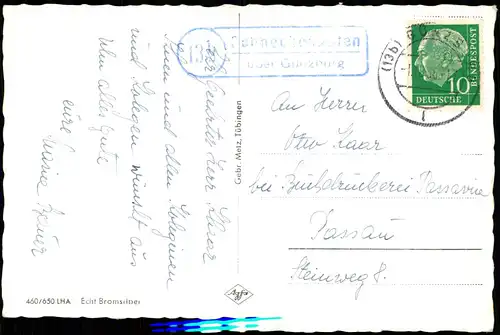 13b
Schneckenhofen
über Günzburg
(13b) GÜNZBURG
10
DEUTSCHE
BUNDESPOST
Sehr geehrter Herr Kaar
Ihnen und allen Kolleginnen
und Kollegen wünscht aus
Ulm alles Gute
eure Maria
Gebr. Metz, Tübingen
An Herrn
Otto Kaar
bei Buchdruckerei Passavia
Passau
Steinweg 8.
460/650 LHA Echt Bromsilber
Agfa